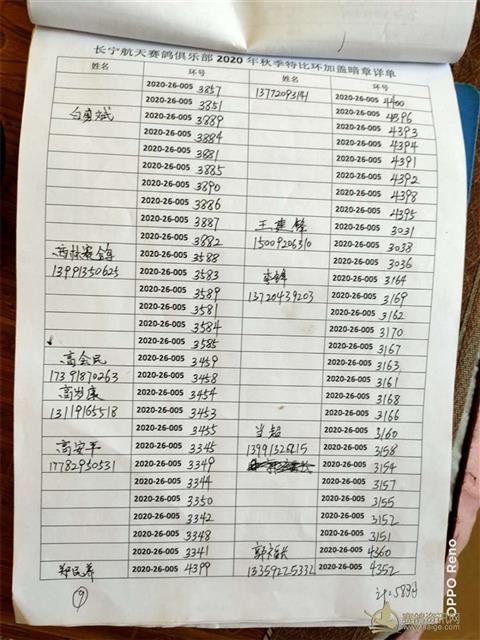 长宁航天赛鸽俱乐部 2020 年秋季特比环加盖暗章详单
姓名 环号 姓名 环号
2020-26-005 3857 13772093141 2020-26-005 4400
2020-26-005 3851 2020-26-005 4396
2020-26-005 3889 2020-26-005 4393
2020-26-005 3884 2020-26-005 4394
2020-26-005 3881 2020-26-005 4391
2020-26-005 3885 2020-26-005 4392
2020-26-005 3890 2020-26-005 4398
2020-26-005 3886 2020-26-005 4395
2020-26-005 3887 王建锋 2020-26-005 3031
2020-26-005 3882 15009206310 2020-26-005 3038
2020-26-005 3588 2020-26-005 3036
13991350625 2020-26-005 3583 李锋 2020-26-005 3164
2020-26-005 3589 13720439203 2020-26-005 3169
2020-26-005 3581 2020-26-005 3162
2020-26-005 3584 2020-26-005 3170
2020-26-005 3585 2020-26-005 3167
高会民 2020-26-005 3459 2020-26-005 3163
17391870263 2020-26-005 3458 2020-26-005 3161
2020-26-005 3454 2020-26-005 3168
13119165518 2020-26-005 3453 2020-26-005 3166
2020-26-005 3455 2020-26-005 3160
高安平 2020-26-005 3345 2020-26-005 3158
17782950531 2020-26-005 3349 2020-26-005 3154
2020-26-005 3344 2020-26-005 3157
2020-26-005 3350 2020-26-005 3155
2020-26-005 3342 2020-26-005 3152
2020-26-005 3348 2020-26-005 3151
2020-26-005 3341 2020-26-005 4360
2020-26-005 4399 13359225332 2020-26-005 4352
9
OPPO Reno